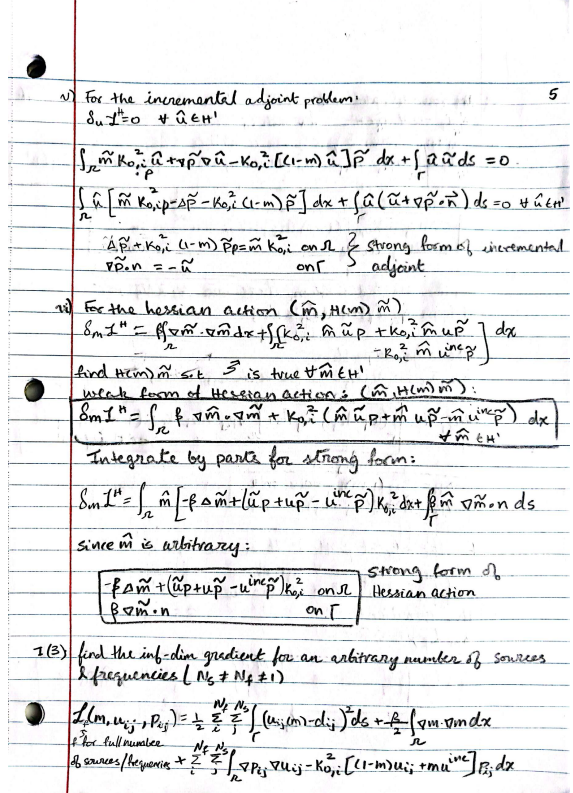 v) For the incremental adjoint problem: 5
δ_u ℒ^H = 0 ∀ û ∈ H'
∫_Ω m̃ K_{0,i}^2 û p + ∇p̃ ∇û - K_{0,i}^2 [(1-m) û] p̃ dx + ∫_Γ û ũ ds = 0
∫_Ω û [m̃ K_{0,i}^2 p - Δp̃ - K_{0,i}^2 (1-m) p̃] dx + ∫_Γ û (ũ + ∇p̃ · n⃗) ds = 0 ∀ û ∈ H'
Δp̃ + K_{0,i}^2 (1-m) p̃ = m̃ K_{0,i}^2 on Ω } strong form of incremental
∇p̃ · n = -ũ on Γ adjoint
vi) For the hessian action (m̂, H(m) m̃)
δ_m ℒ^H = β∫_Ω ∇m̃ · ∇m̂ dx + ∫_Ω [K_{0,i}^2 m̂ ũ p + K_{0,i}^2 m̂ u p̃ - K_{0,i}^2 m̂ u^{inc} p̃] dx
find H(m) m̃ s.t. is true ∀ m̂ ∈ H'
weak form of Hessian Action: (m̂, H(m) m̃):
δ_m ℒ^H = ∫_Ω β ∇m̂ · ∇m̃ + K_{0,i}^2 (m̂ ũ p + m̂ u p̃ - m̂ u^{inc} p̃) dx
∀ m̂ ∈ H'
Integrate by parts for strong form:
δ_m ℒ^H = ∫_Ω m̂ [-β Δm̃ + (ũ p + u p̃ - u^{inc} p̃) K_{0,i}^2 dx + ∫_Γ β m̂ ∇m̃ · n ds
since m̂ is arbitrary:
-β Δm̃ + (ũ p + u p̃ - u^{inc} p̃) K_{0,i}^2 on Ω strong form of
β ∇m̃ · n on Γ Hessian action
1(3) find the inf-dim gradient for an arbitrary number of sources
& frequencies (N_s ≠ N_f ≠ 1)
ℒ_f(m, u_{ij}, p_{ij}) = 1/2 Σ_i^{N_f} Σ_j^{N_s} ∫_Γ (u_{ij}(m) - d_{ij})^2 ds + β/2 ∫_Ω ∇m · ∇m dx
for full number
of sources/frequencies + Σ_i^{N_f} Σ_j^{N_s} ∫_Ω ∇p_{ij} ∇u_{ij} - K_{0,i}^2 [(1-m) u_{ij} + m u^{inc}] p_{ij} dx